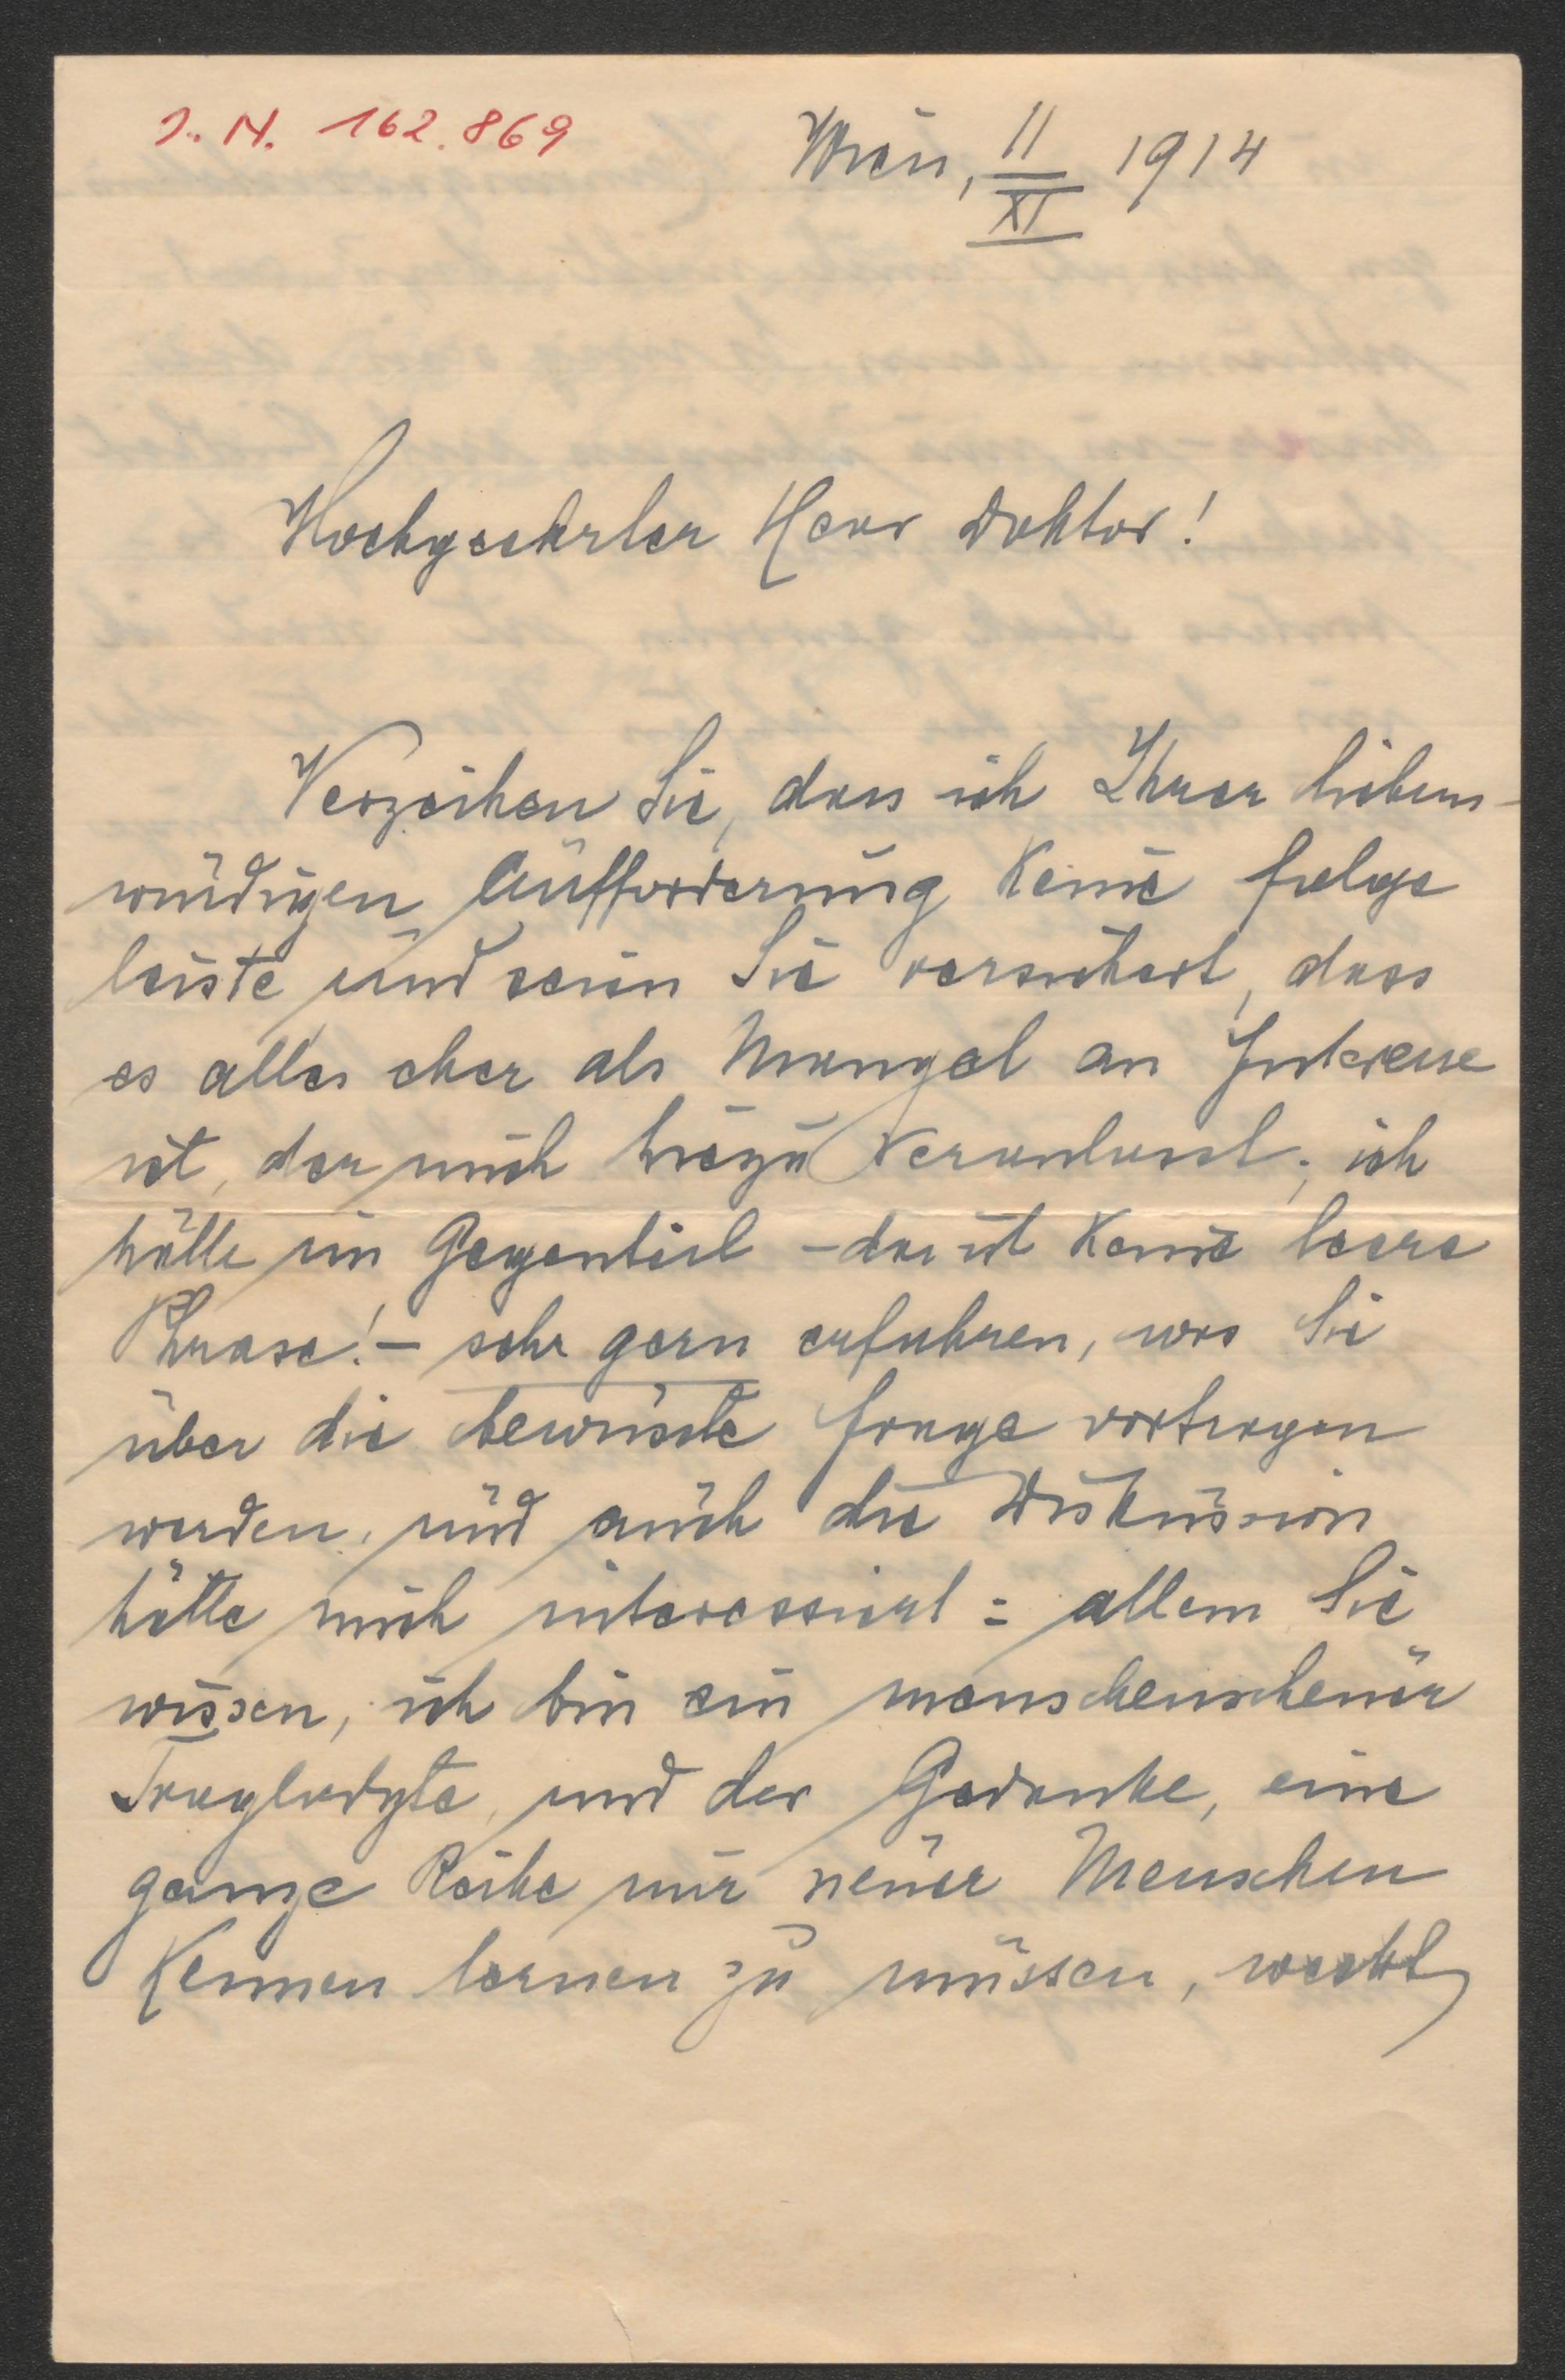 J. N. 162.869
Wien, 11/XI 1914
Hochgeehrter Herr Doktor!
Verzeihen Sie, dass ich Ihrer liebens-
würdigen Aufforderung keine Folge
leiste und seien Sie versichert, dass
es alles eher als Mangel an Interesse
ist, der mich hiezu veranlasst; ich
hätte im Gegenteil - das ist keine leere
Phrase! - sehr gern erfahren, was Sie
über die bewusste Frage vortragen
werden, und auch die Diskussion
hätte mich interessiert: allein Sie
wissen, ich bin ein menschenscheuer
Troglodyte, und der Gedanke, eine
ganze Reihe mir neuer Menschen
kennen lernen zu müssen, weckt